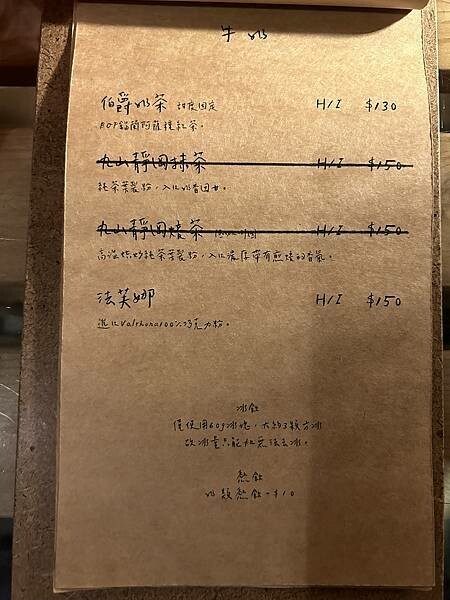 牛奶
伯爵奶茶 甜度固定 H/I $130
AOP錫蘭阿薩姆紅茶。
丸山靜岡抹茶 H/I $150
純茶葉製粉，入口奶香回甘。
丸山靜岡焙茶 H/I $150
高溫烘炒純茶葉製粉，入口濃厚帶有煎焙的香氣。
法芙娜 H/I $150
進口Valrhona100%巧克力粉。
冰飲
僅使用60g冰塊，大約3顆方冰
故冰量只能 無法去冰。
熱飲
奶類熱飲 $10